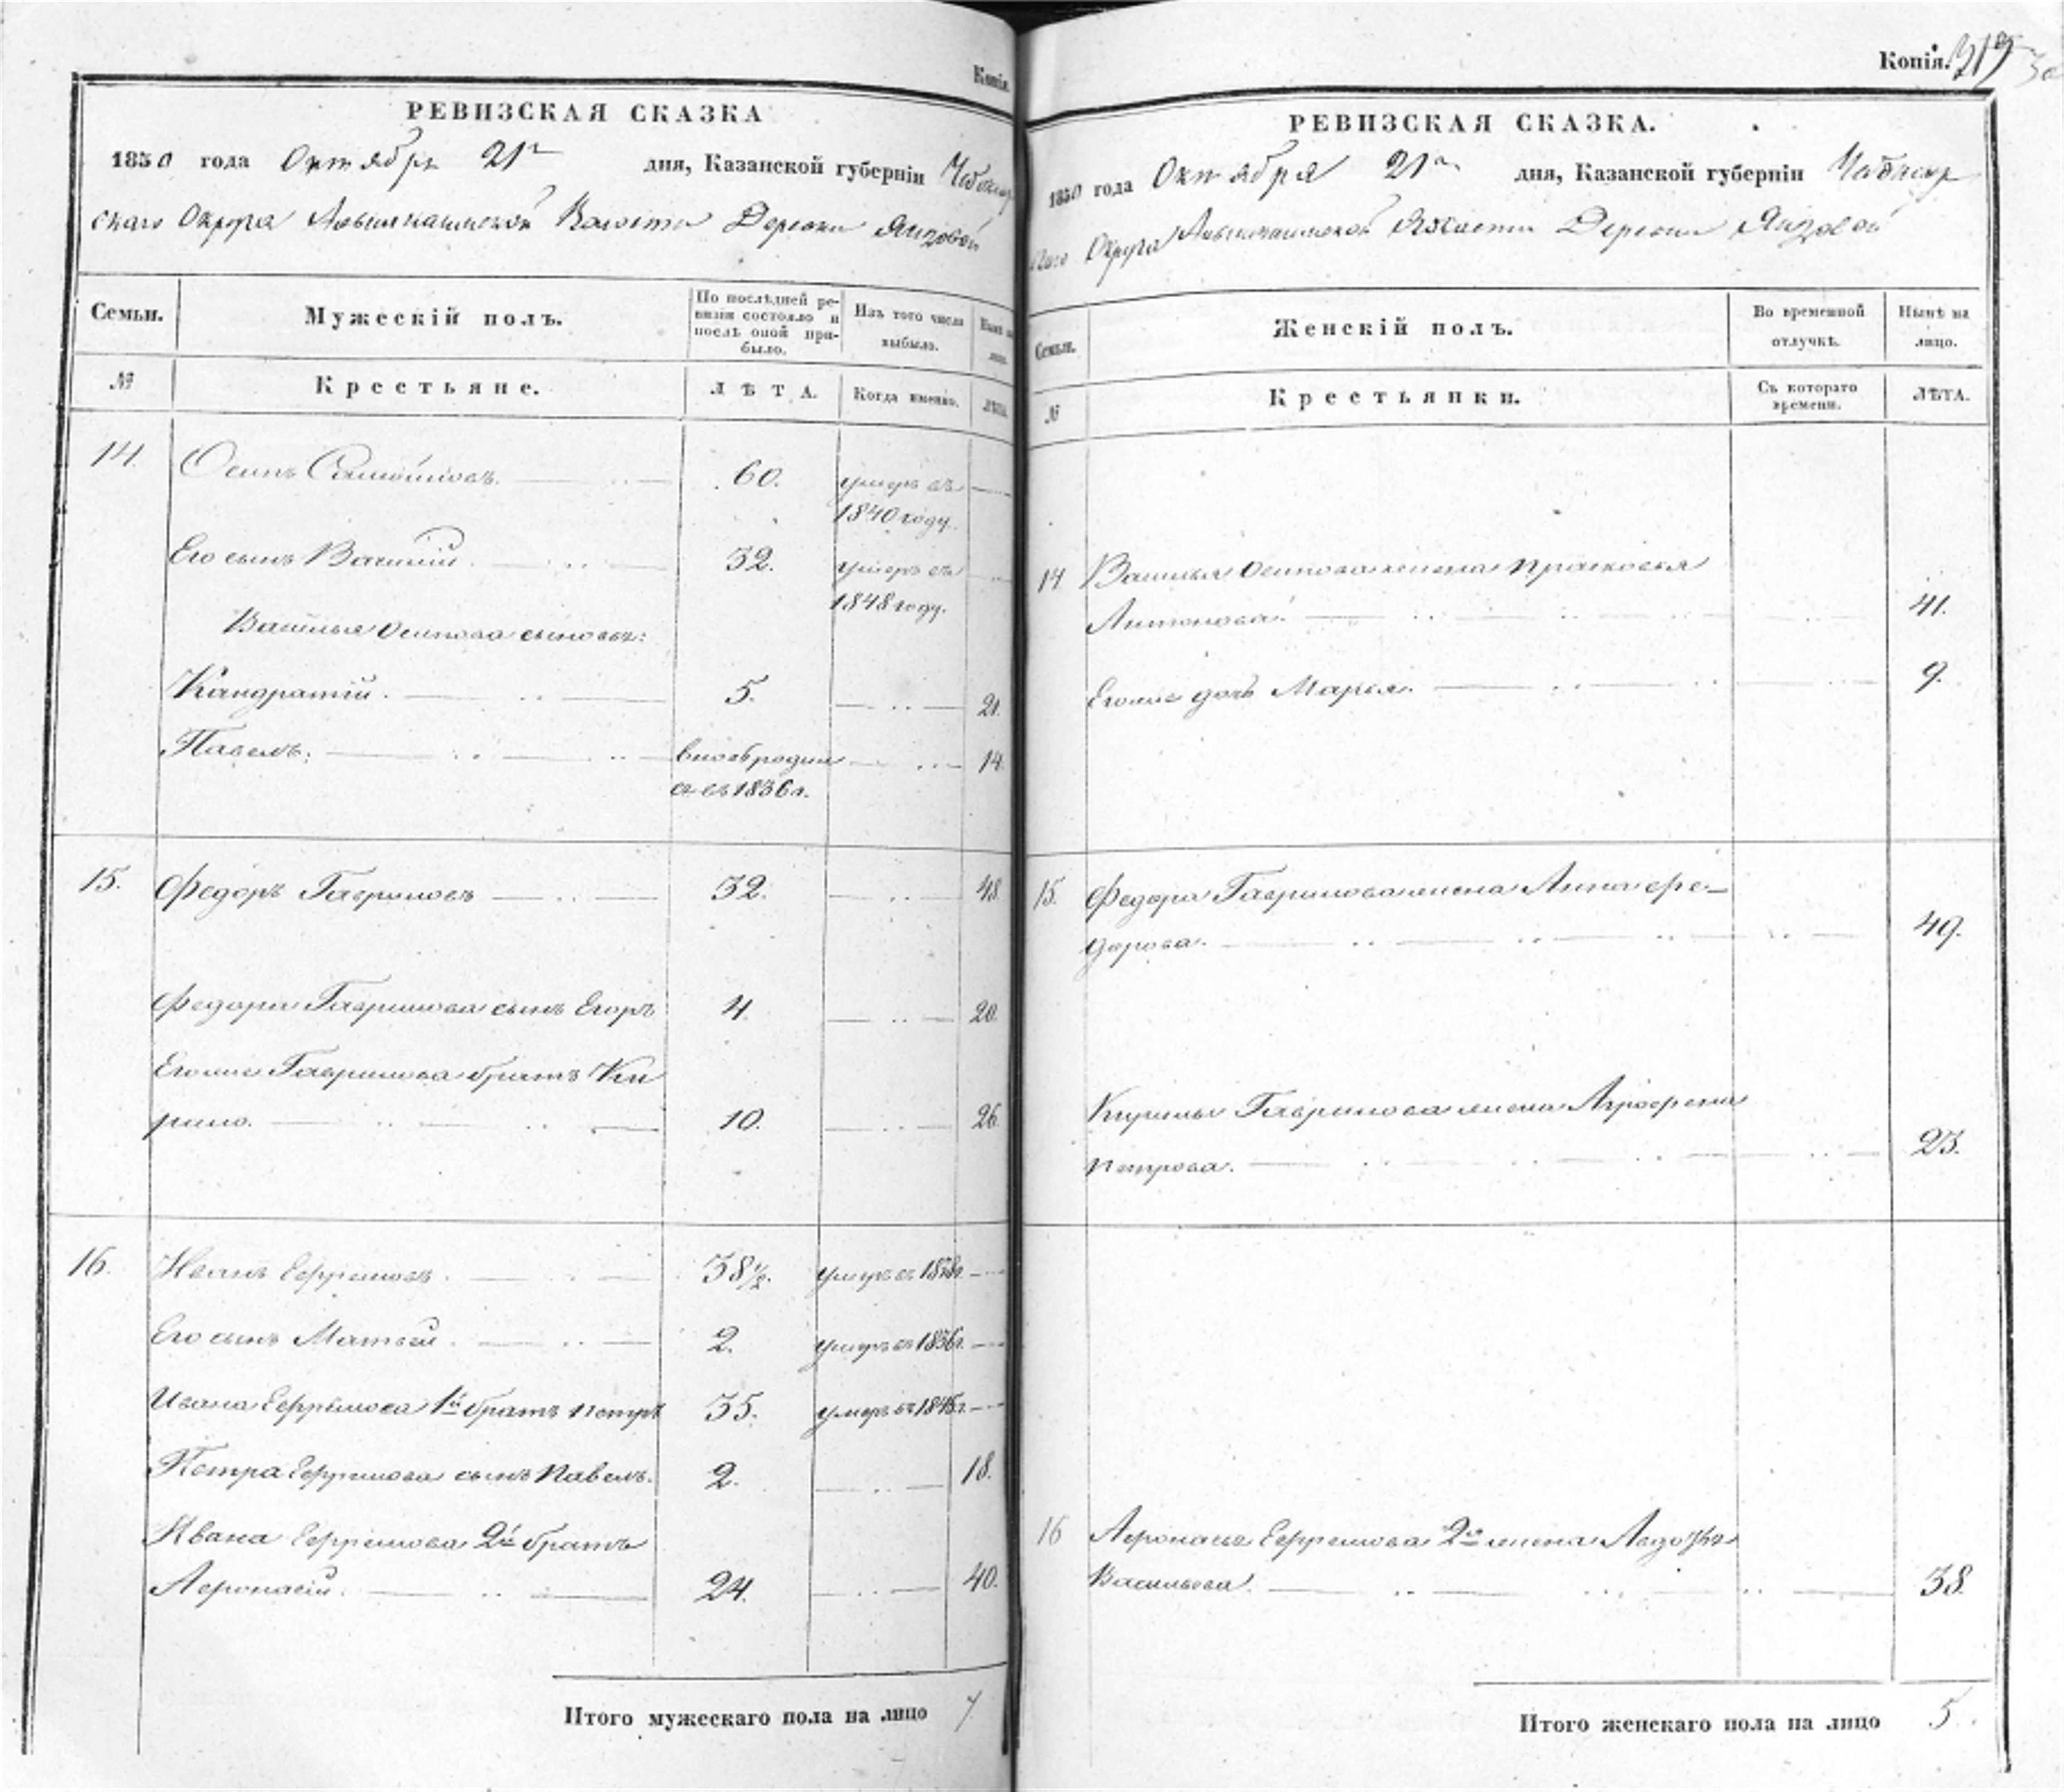 Копія.
РЕВИЗСКАЯ СКАЗКА
1850 года Октября 21го дня, Казанской губерніи Чебоксар
скаго Округа Волости Деревни Янзовой
Семьи.
Мужескій полъ.
По послѣдней ре-
визіи состояло и
послѣ оной при-
было.
Изъ того числа
выбыло.
Нынѣ на
лицо.
№
Крестьяне.
ЛѢТА.
Когда именно.
ЛѢТА.
14. Осипъ Самойловъ. 60. умеръ въ
1840 году.
Его сынъ Василій. 32. умеръ въ
1848 году.
Василья Осипова сыновья:
Кандратій. 5. 21.
Павелъ. вновь родил 14.
ся въ 1836 г.
15. Федоръ Гавриловъ 32. 48.
Федора Гаврилова сынъ Егоръ 4. 20.
Егоже Гаврилова братъ Ки
рило. 10. 26.
16. Иванъ Ефремовъ. 38½. умеръ въ
Его сынъ Матвей. 2. умеръ въ 1836г.
Ивана Ефремова 1й братъ Петръ 35. умеръ въ 1845г.
Петра Ефремова сынъ Павелъ. 2. 18.
Ивана Ефремова 2й братъ
Афонасій. 24. 40.
Итого мужескаго пола на лицо 7
Копія. 319 30
РЕВИЗСКАЯ СКАЗКА.
1850 года Октября 21го дня, Казанской губерніи Чебоксар
скаго Округа Волости Деревни Янзовой
Семьи.
Женскій полъ.
Во временной
отлучкѣ.
Нынѣ на
лицо.
№
Крестьянки.
Съ котораго
времени.
ЛѢТА.
14 Василья Осипова жена Прасковья
Антонова. 41.
Егоже дочь Марья. 9.
15. Федора Гаврилова жена Анна Фе-
дорова. 49.
Кирилы Гаврилова жена Агрофена
Петрова. 23.
16 Афонасья Ефремова 2я жена Авдотья
Васильева. 38.
Итого женскаго пола на лицо 5.